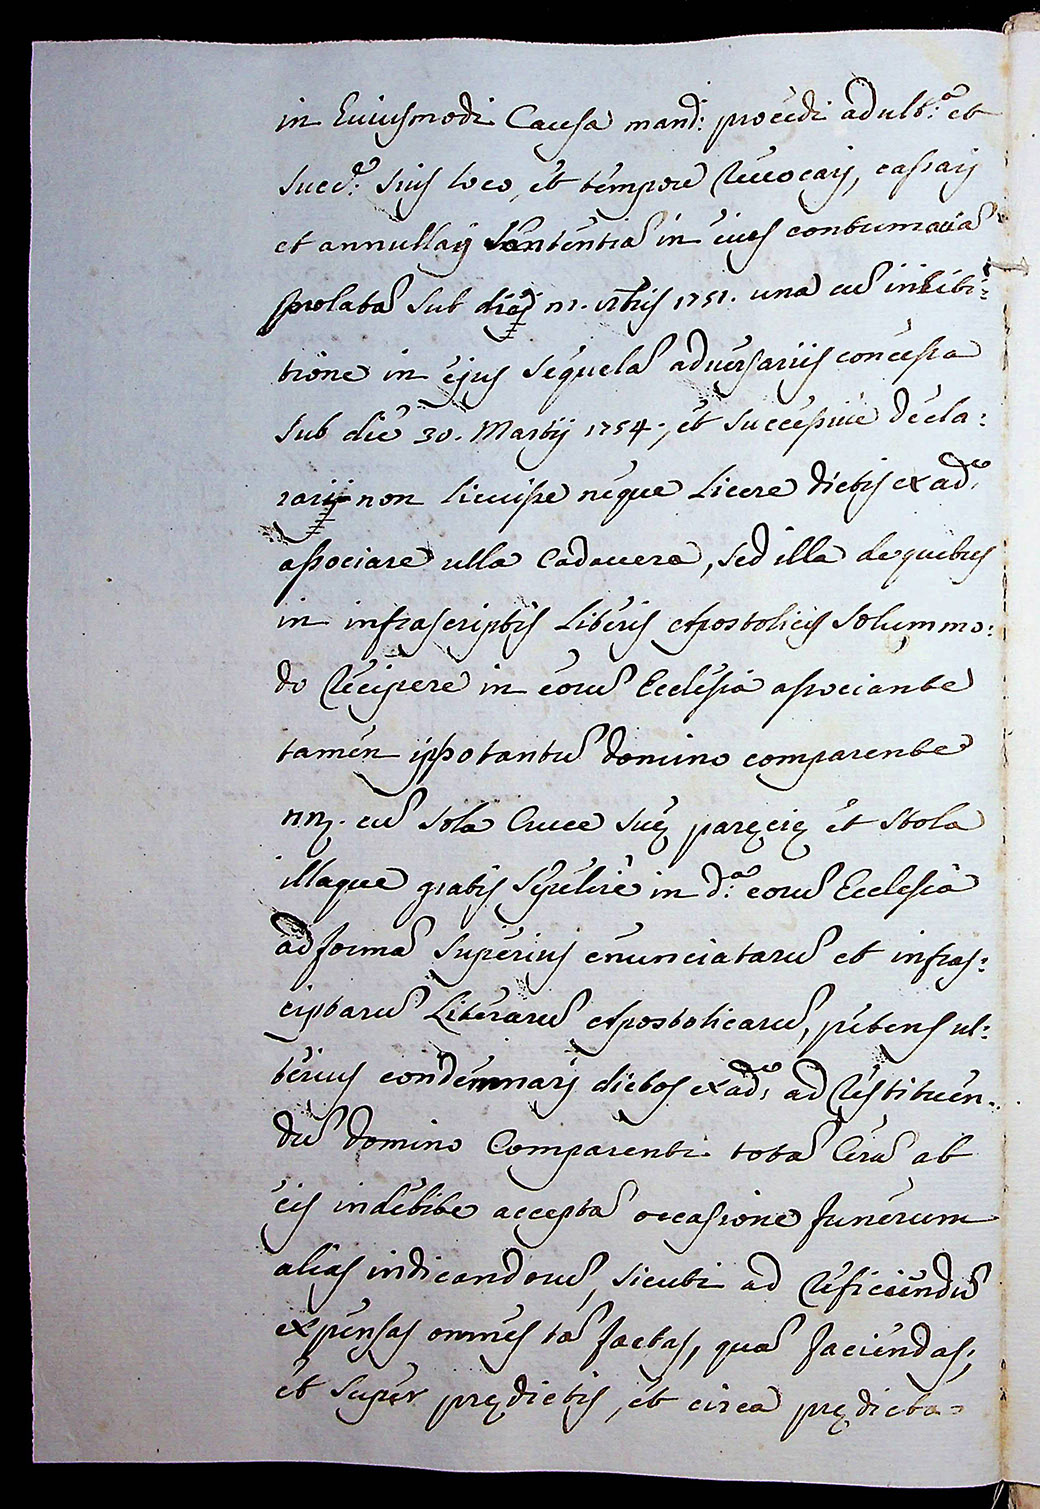 in huiusmodi Causa mand: procedi ad ult:ª et
succ:e suis loco, et tempore revocarij, cassarij
et annullarij sententiã in eius contumaciã
prolatã sub die 11. Xbris 1751. una cũ inhibi:
tione in ejus sequelã adversariis concessa
sub die 30. Martij 1754., et successive decla:
rarij non licuisse neque licere dictis ex adº,
associare ulla Cadavera, sed illa de quibus
in infrascriptis Literis Apostolicis solummo:
do recipere in eorũ Ecclesia associante
tamen ipso tantũ Domino comparente
nrẽ. cũ sola Cruce suę paręcię et stola
illaque gratis sepelire in d:ª eorũ Ecclesia
ad formã superius enunciatarũ et infras:
ciptarũ Literarũ Apostolicarũ, petens ul:
terius condemnarij dictos ex adº, ad restituen:
dũ Domino Comparenti totã Cerã ab
eis indebite acceptã occasione funerum
alias indicandorũ, sicuti ad reficiendũ
expensas omnes tã factas, quã faciendas;
et super prędictis, et circa prędicta